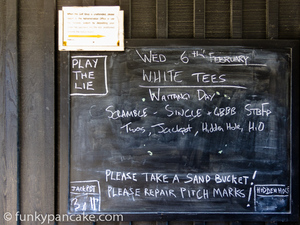 WED 6th FEBRUARY
PLAY
THE
LIE
WHITE TEES
WAITANGI DAY
SCRAMBLE - SINGLE + GBBB STBFD
Twos, Jackpot, Hidden Hole, H.I.O
PLEASE TAKE A SAND BUCKET!
PLEASE REPAIR PITCH MARKS!
JACKPOT
HIDDEN HOLE
© funkypancake.com